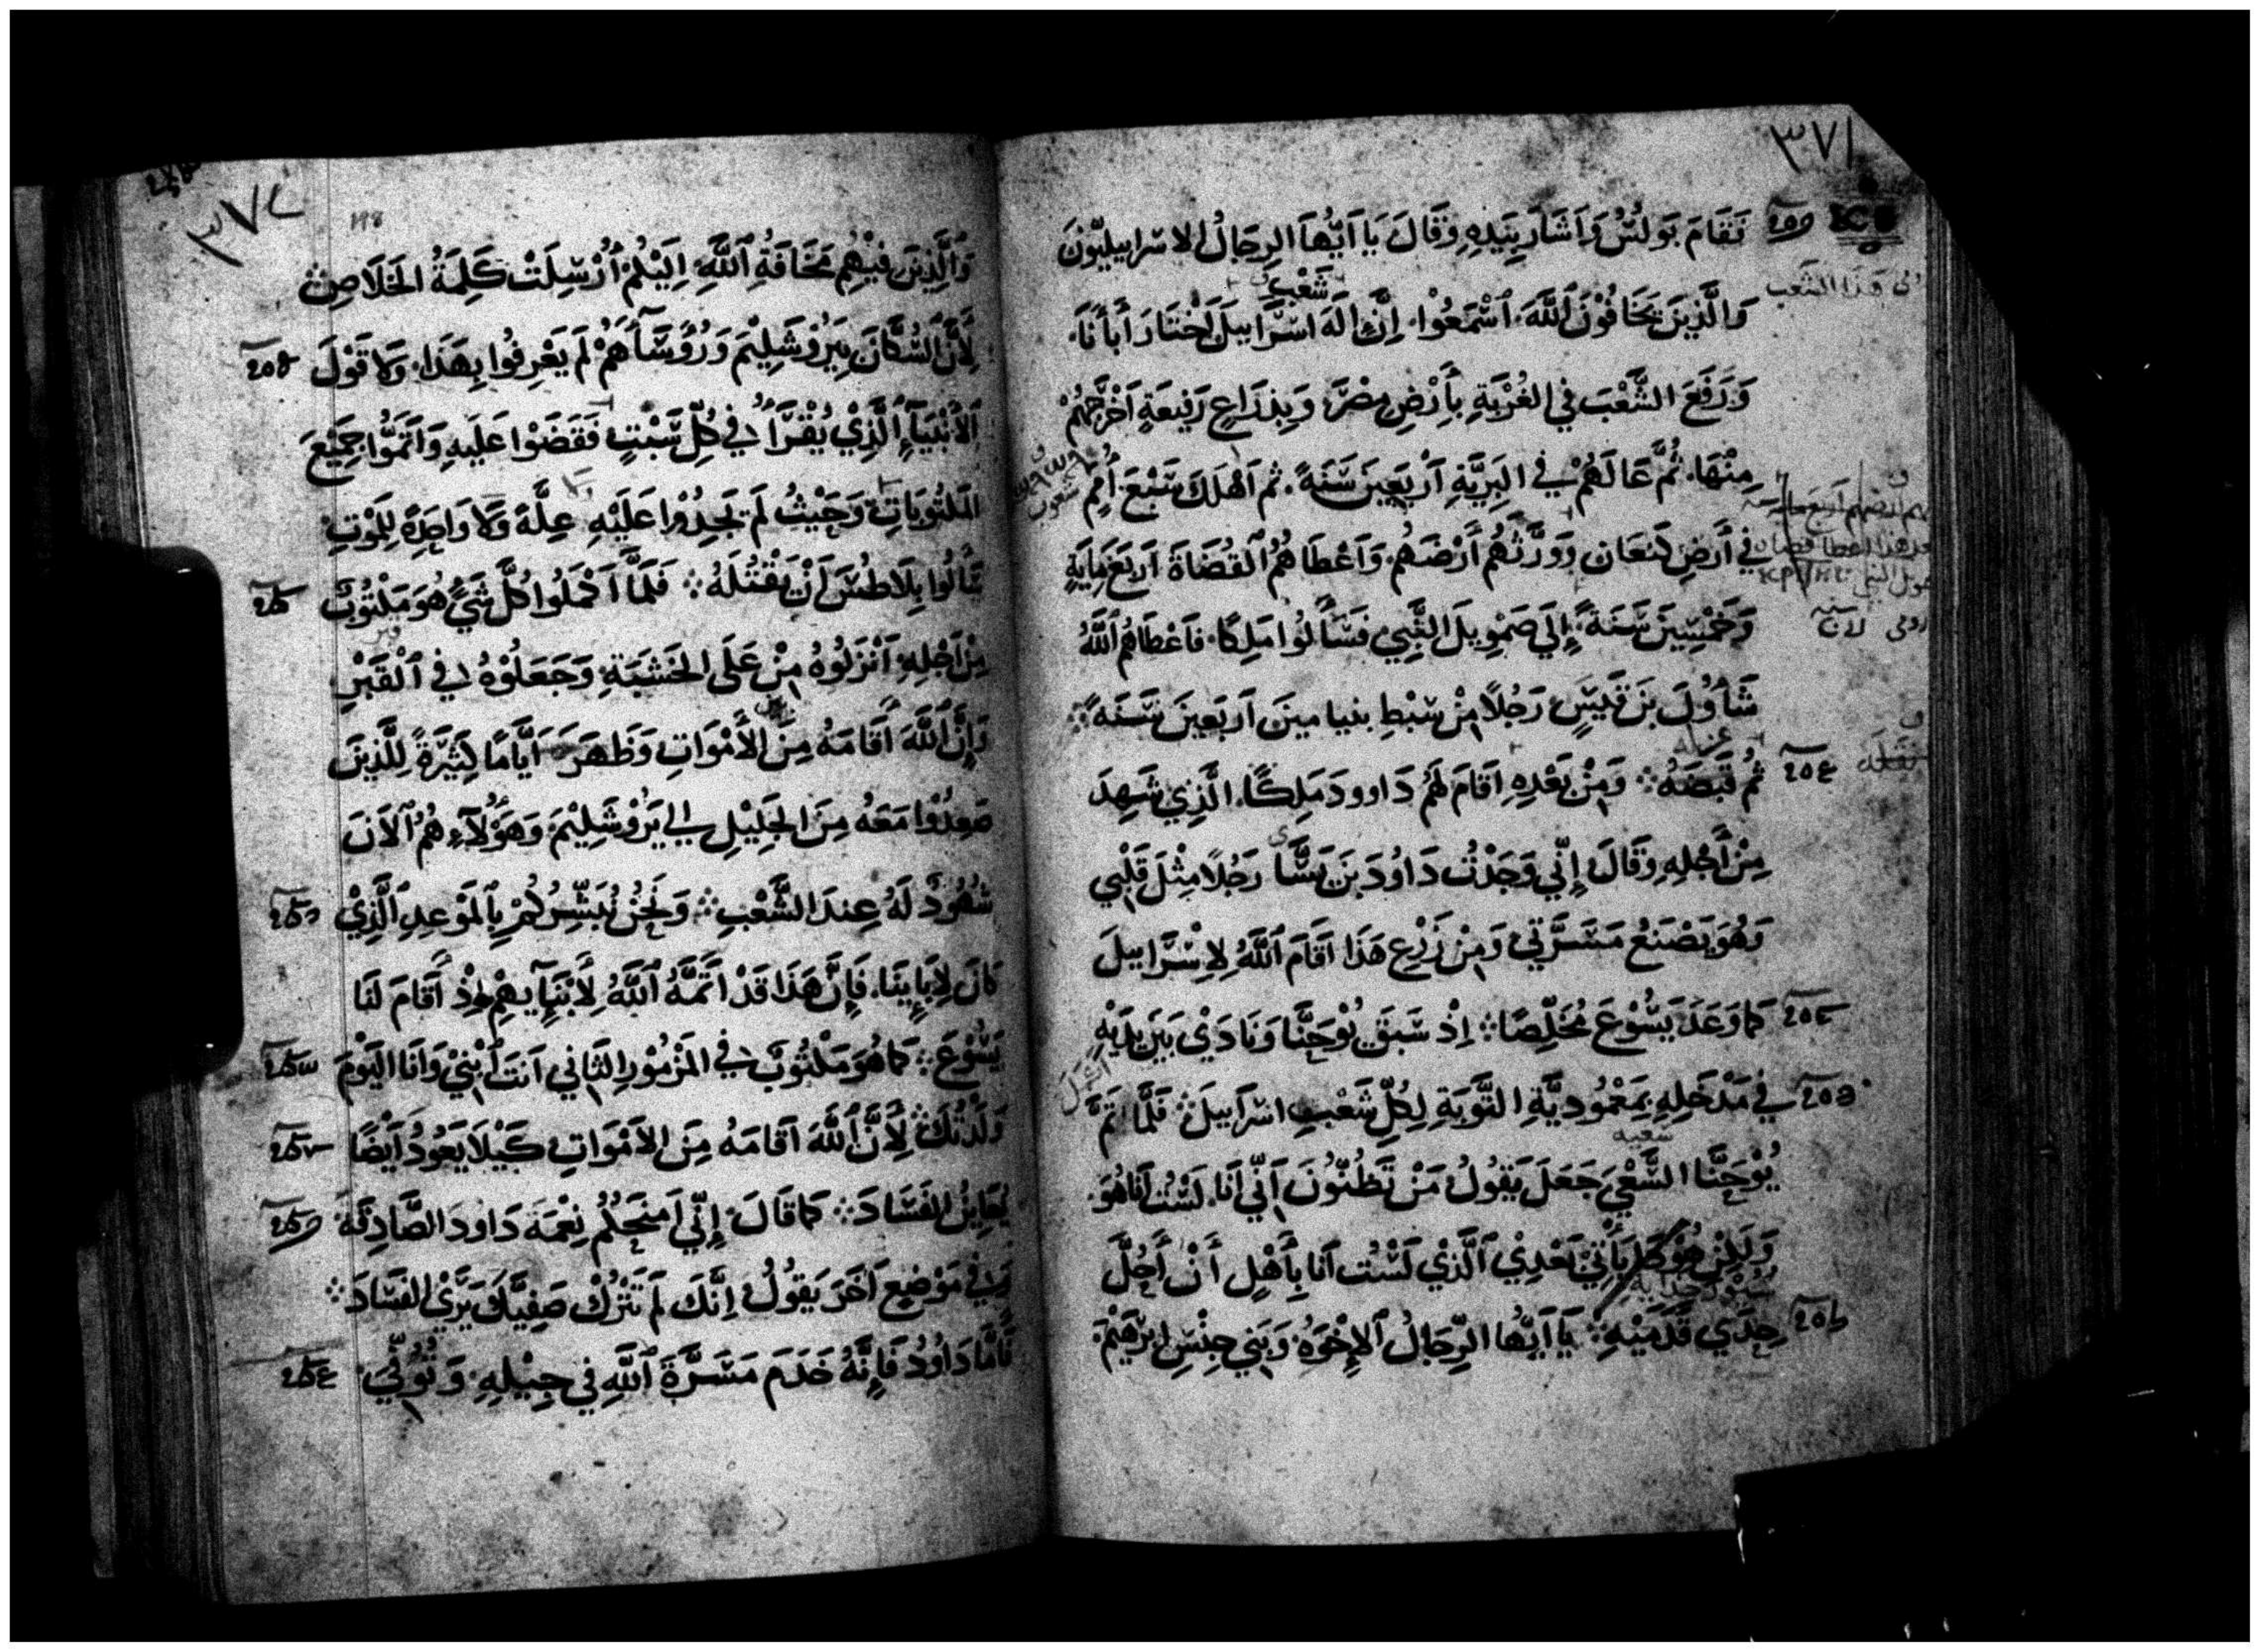 ٣٧١
فَقَامَ بَولُسُ وَاَشَارَ بِيَدِهِ وَقَالَ يَا اَيُّهَا الرِجَالُ الاسراييليُّونَ
وَالَّذِينَ يَخَافُونَ اللَّهَ اَسْمَعُوْا اِنَّ اِلَهَ اسْرَاييلَ اخْتَارَ أَبأنَا
شَعْب
هَذَا الشعب
وَرَفَعَ الشَّعْبَ في الغُرْبَةِ بأَرْضِ مِصْرَ وَبِذِرَاعٍ رَفِيعَةٍ اَخْرَجَهُمْ
مِنْهَا ثُمَّ عَالَهُمْ في البَرِيَّةِ اَرْبَعِينَ سَنَةً ثم اَهْلَكَ سَبْعَ أُمَمٍ
شعوب
في أَرْضِ كَنعَان وَوَرَّثَهُم أَرْضَهُم وَاَعْطَاهُمُ القُضَاةَ اَربَعَ مِايَةٍ
وَخَمْسِينَ سَنَةً إِلَي صَمْوِيلَ النَّبِي فَسَأَلُوا مَلِكًا فَاَعْطَاهُمُ اللَّهُ
شَاؤُلَ بن قَيسٍ رَجُلاً مِنْ سِبْطِ بنيامينَ اَربَعينَ سَنَةً
ثُمَّ قَبَضَهُ وَمِنْ بَعْدِهِ اَقَامَ لَهُم دَاوودَ مَلِكًا الَّذِي شَهِدَ
مِنْ أَجْلِهِ وَقَالَ إِنِّي وَجَدْتُ دَاوُدَ بنَ يَسَّا رَجُلاً مِثْلَ قَلْبِي
وَهُوَ يَصْنَعُ مَسَرَّتي وَمِنْ زَرْعِ هَذَا اَقَامَ اللَّهُ لِاِسْرَاييلَ
كما وَعَدَ يَسُوْعَ مُخَلِّصًا اِذْ سَبَقَ يُوْحَنَّا وَنَادَيْ بَيْنَ يَدَيْهِ
في مَدْخَلِهِ بِمَعْمُودِيَّةِ التَّوبَةِ لِكُلِّ شَعْبِ اسْرَاييلَ فَلَّمَا تَمَّ
يُوْحَنَّا السَّعْيَ جَعَلَ يَقُولُ مَنْ تَظُنُّونَ اَنِّي اَنَا لَسْتُ اَنَا هُوَ
وَلَكِنْ هُوَ يَأْتِيْ بَعْدِيْ الَّذِيْ لَسْتُ اَنَا بِأَهْلٍ أَنْ أَحُلَّ
حِذَي قَدَمَيْهِ يَا اَيُّهَا الرِّجَالُ الإِخْوَةُ وَبَنِي جِنْسِ ابْرَهِيْمَ
٣٧٢
198
وَالَّذِينَ فِيْهِمْ مَخَافَةُ اللَّهِ اِلَيْكُمْ أُرْسِلَتْ كَلِمَةُ الخَلَاصِ
لِأَنَّ السُّكَّانَ بِيَرُوْشَلِيْمَ وَرُؤَسَآءَهُمْ لَم يَعْرِفُوا بِهَذَا وَلَا قَوْلَ
الأَنْبِيَآءِ الَّذِيْ يُقْرَأُ في كُلِّ سَبْتٍ فَقَضَوْا عَلَيهِ وَاَتَمُّوا جَمِيْعَ
المَكْتُوبَاتِ وَحَيْثُ لَم يَجِدُوْا عَلَيْهِ عِلَّةً وَلَا واحِدَةً لِلمَوْتِ
سَأَلُوا بِلَاطُسَ اَنْ يَقْتُلَهُ فَلَمَّا اَكْمَلُوا كُلَّ شَيًٍ هُوَ مَكْتُوبٌ
مِنْ اَجْلِهِ اَنْزَلُوهُ مِنْ عَلَى الخَشَبَةِ وَجَعَلُوْهُ في الْقَبْرِ
وَاِنَّ اللَّهَ اَقَامَهُ مِنَ الأَمْوَاتِ وَظَهَرَ اَيَّامًا كَثِيْرَةً لِلَّذِينَ
صَعِدُوْا مَعَهُ مِنَ الجَلِيْلِ الي يَرُوْشَلِيْمَ وَهَؤُلآءِ هُمُ الاَنَ
شُهُوْدٌ لَهُ عِندَ الشَّعْبِ وَنَحْنُ نُبَشِّرُكُمْ بِالمَوْعِدِ الَّذِيْ
كَانَ لِاَبَايِنَا فَاِنَّ هَذَا قَدْ اَتَمَّهُ اللَّهُ لِأَبْنَآيهِمْ اِذْ أَقَامَ لَنَا
يَسُوْعَ كَمَا هُوَ مَكْتُوْبٌ في المَزْمُوْرِ الثَاني اَنتَ اَبْنِيْ وَاَنَا اليَوْمَ
وَلَدْتُكَ لِأَنَّ اللَّهَ اَقَامَهُ مِنَ الاَمْوَاتِ كَيْلَا يَعُوْدُ اَيْضًا
يُعَايِنُ الفَسَادَ كَمَا قَالَ إِنِّي اَمنَحُكُم نِعْمَةَ دَاودَ الصَّادِقَةَ
وَفي مَوْضِعٍ اَخَرَ يَقُولُ اِنَّكَ لَم تَتْرُكْ صَفِيَّكَ يَرَيْ الفَسَادَ
فَأَمَّا دَاوُدُ فَاِنَّهُ خَدَمَ مَسَرَّةَ اللَّهِ في جِيْلِهِ وَتُوُفِّيَ